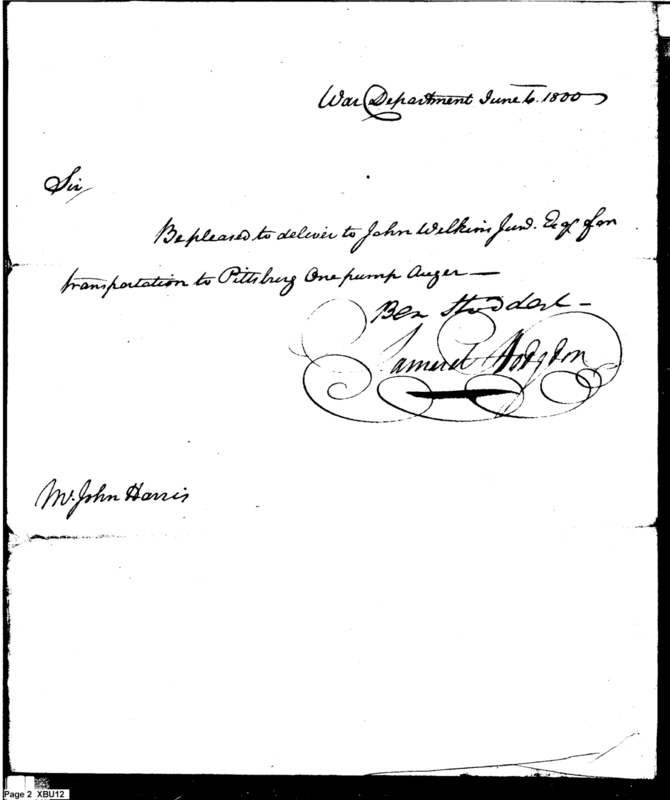 War Department June 6. 1800
Sir
Be pleased to deliver to John Wilkins Junr. Esqr for
transportation to Pittsburg One pump Auger —
Ben Stoddert —
Samuel Hodgdon
Mr. John Harris
Page 2 XBU12